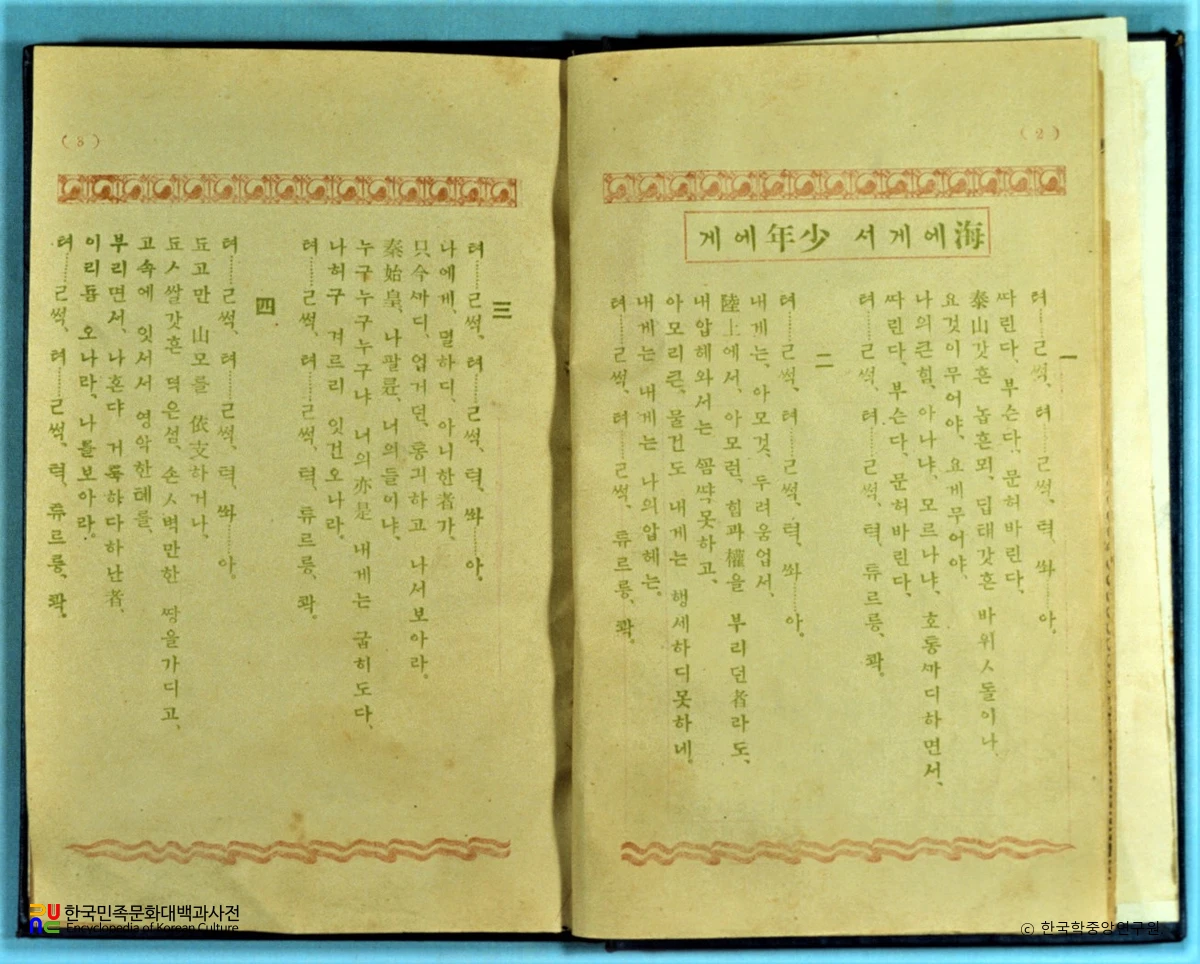 (2)
海에게서 少年에게
一
텨……ㄹ썩, 텨……ㄹ썩, 텩, 쏴……아.
따린다, 부슨다, 문허바린다,
泰山갓흔 놉흔뫼, 딥태갓흔 바위ㅅ돌이나,
요것이무어야, 요게무어야,
나의큰힘, 아나냐, 모르나냐, 호통ᄭᅡ디하면서,
따린다, 부슨다, 문허바린다,
텨……ㄹ썩, 텨……ㄹ썩, 텩, 튜르릉, 콱.
二
텨……ㄹ썩, 텨……ㄹ썩, 텩, 쏴……아.
내게는, 아모것, 두려움업서,
陸上에서, 아모런, 힘과權을 부리던者라도,
내압헤와서는 ᄭᅩᆷᄶᅡᆨ못하고,
아모리큰, 물건도 내게는 행세하디못하네.
내게는 내게는 나의압헤는.
텨……ㄹ썩, 텨……ㄹ썩, 텩, 튜르릉, 콱.
(3)
三
텨……ㄹ썩, 텨……ㄹ썩, 텩, 쏴……아.
나에게, 뎔하디, 아니한者가,
只今ᄭᅡ디, 업거던, 통긔하고 나서보아라.
秦始皇, 나팔륜, 너의들이냐,
누구누구누구냐 너의亦是 내게는 굽히도다,
나허구 겨르리 잇건오나라.
텨……ㄹ썩, 텨……ㄹ썩, 텩, 튜르릉, 콱.
四
텨……ㄹ썩, 텨……ㄹ썩, 텩, 쏴……아.
됴고만 山모를 依支하거나,
됴ㅅ쌀갓흔 뎍은섬, 손ㅅ벽만한 ᄯᅡᆼ을가디고,
고속에 잇서서 영악한톄를,
부리면서, 나혼댜 거룩하다하난者,
이리둄 오나라, 나를보아라.
텨……ㄹ썩, 텨……ㄹ썩, 텩, 튜르릉, 콱.
한국민족문화대백과사전
Encyclopedia of Korean Culture
ⓒ 한국학중앙연구원